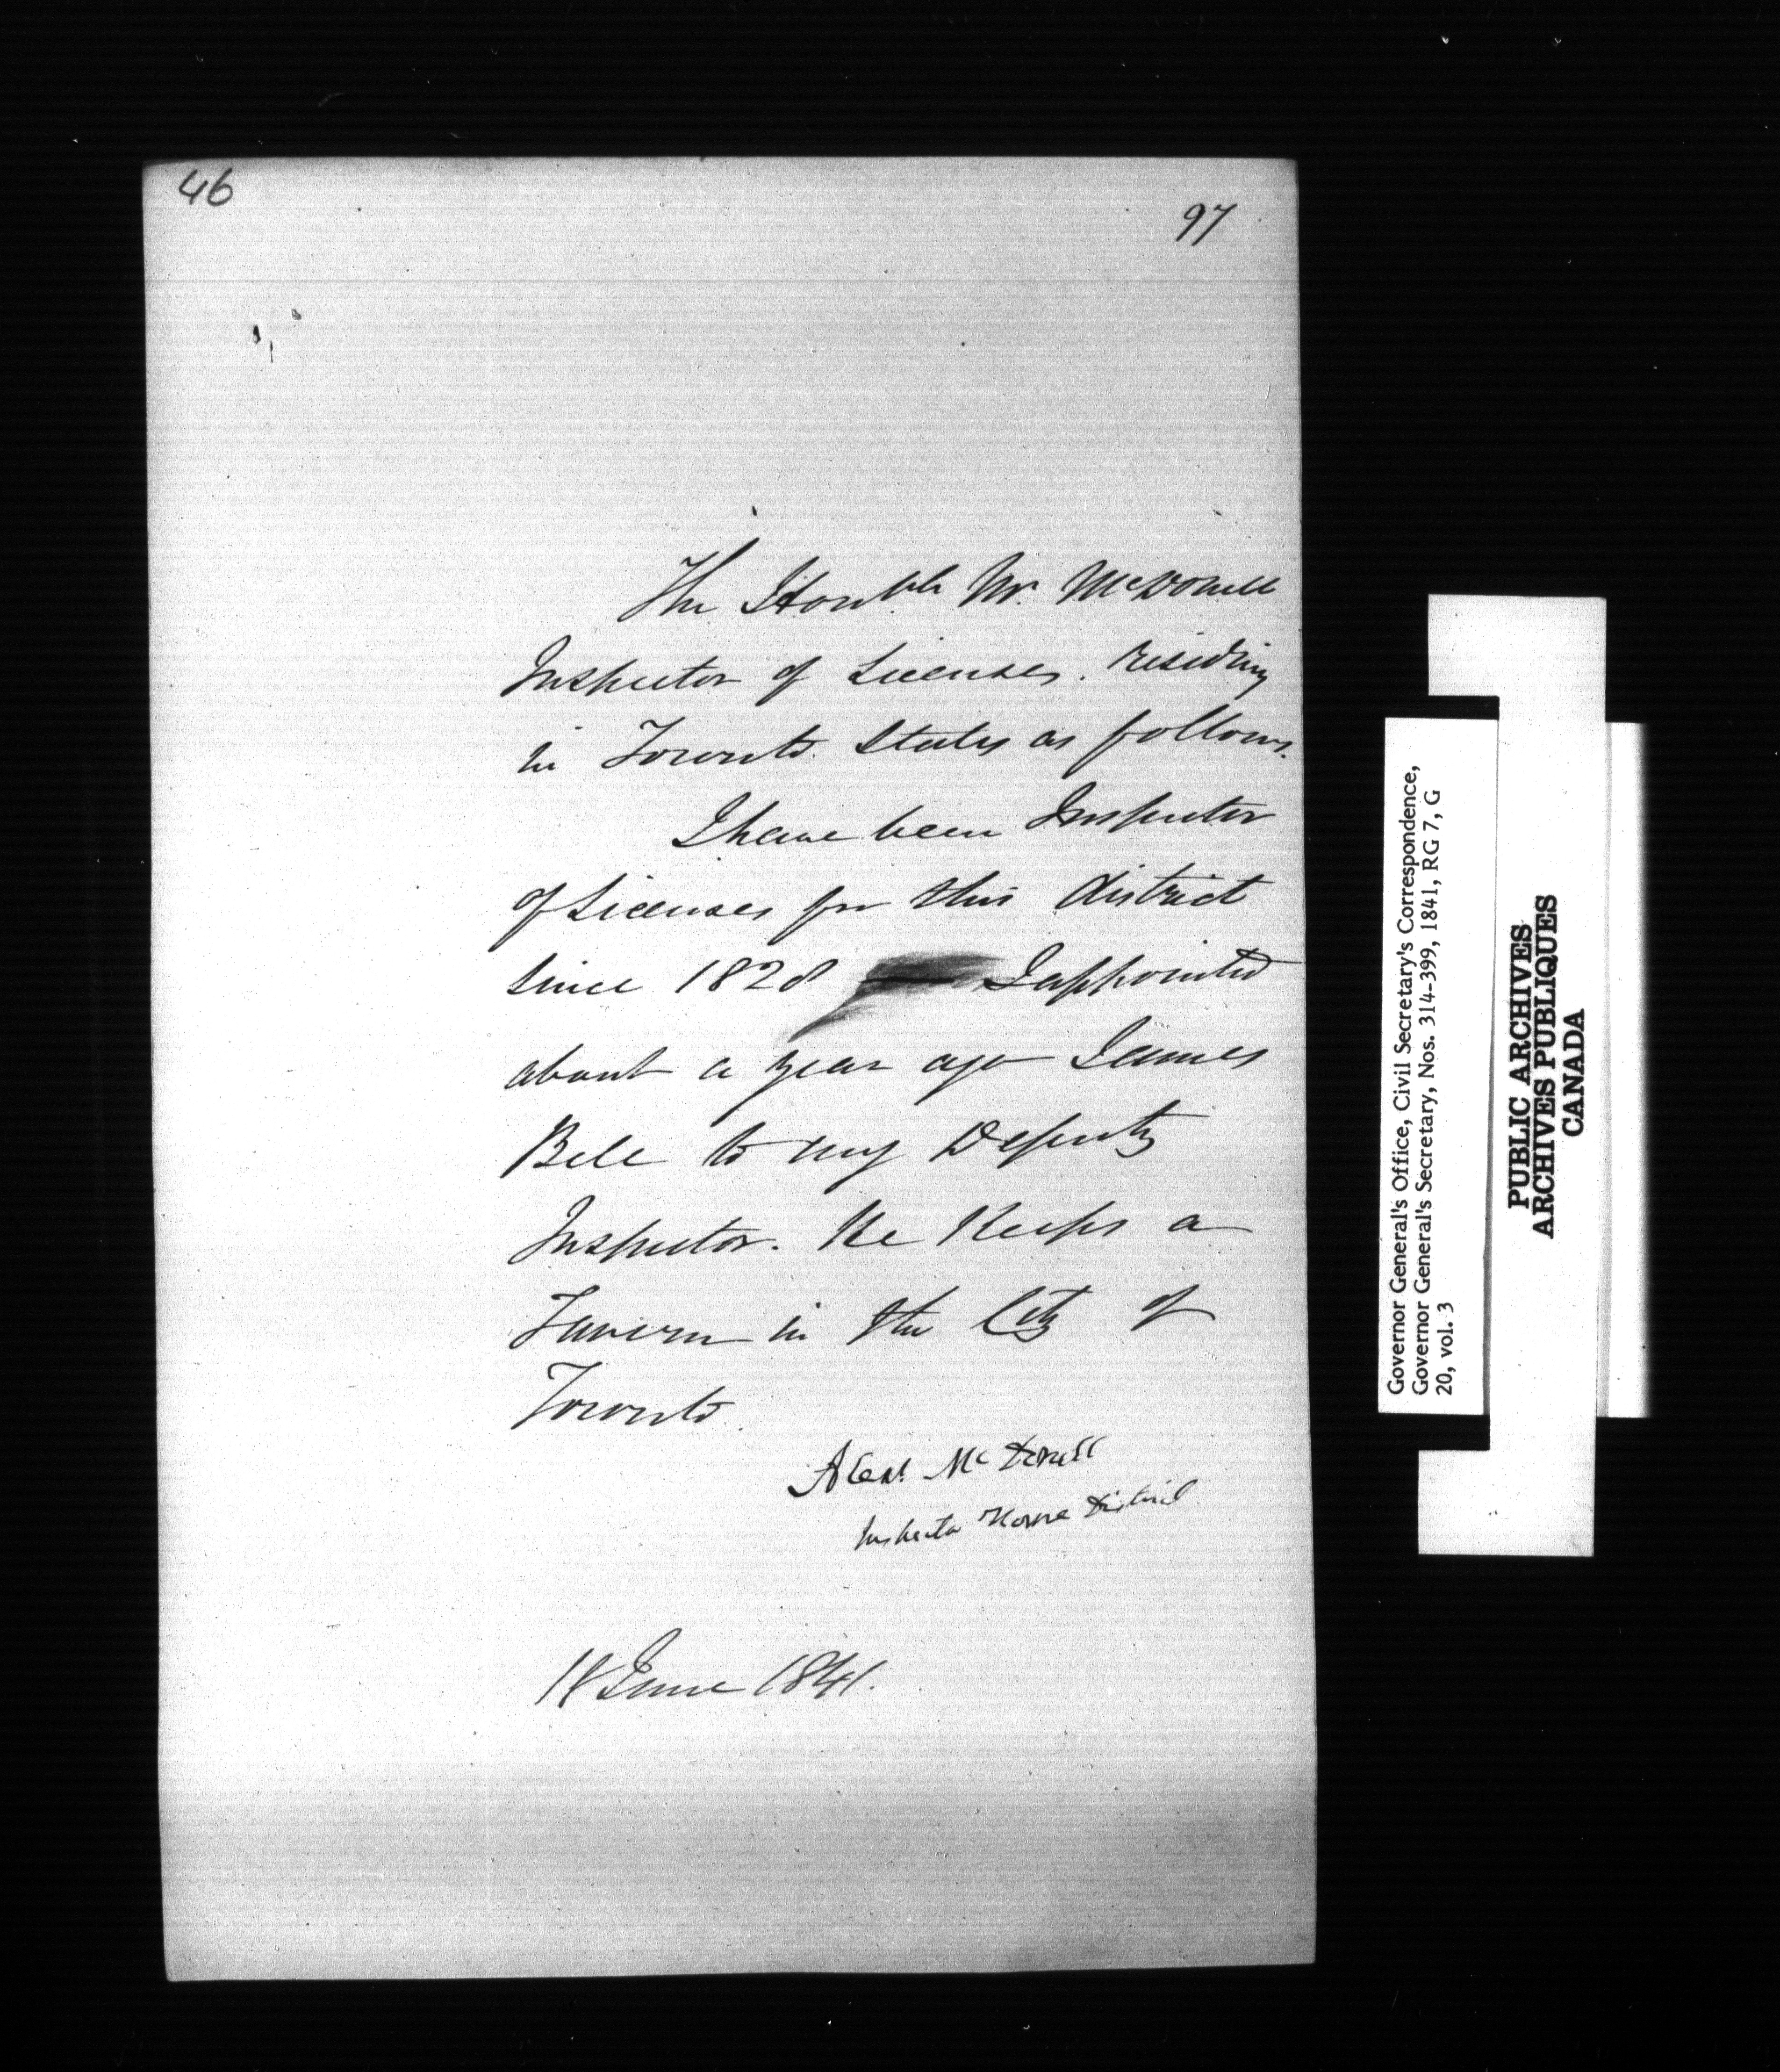 46
97
The Honble Mr. McDonell
Inspector of Licenses. residing
in Toronto. States as follows.
I have been Inspector
of Licenses for this district
since 1828 I appointed
about a year ago James
Bell to my Deputy
Inspector. He Keeps a
Tavern in the City of
Toronto.
Alexr McDonell
Inspector Home District
18 June 1841.
Governor General's Office, Civil Secretary's Correspondence,
Governor General's Secretary, Nos. 314-399, 1841, RG 7, G
20, vol. 3
PUBLIC ARCHIVES
ARCHIVES PUBLIQUES
CANADA